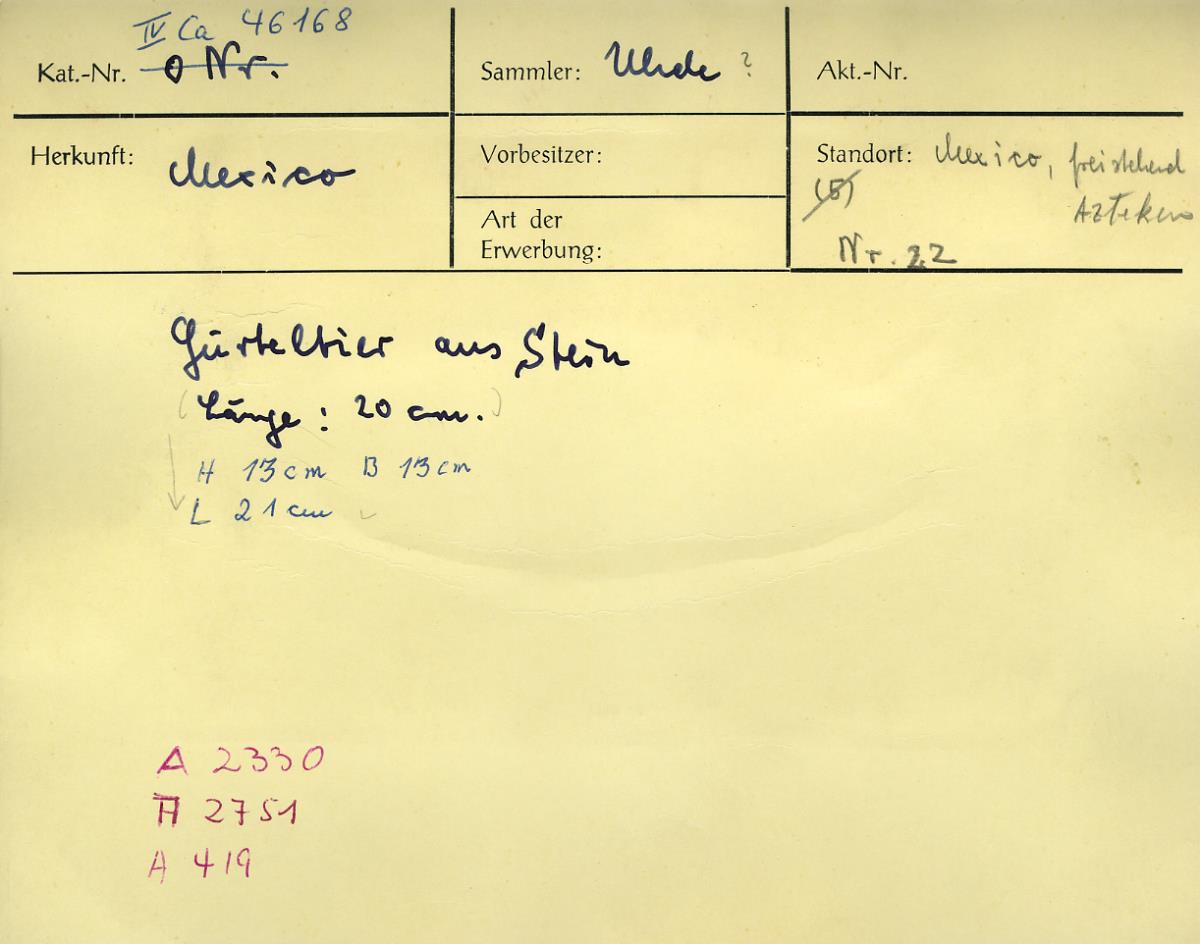 IV Ca 46168
Kat.-Nr. o Nr.
Sammler: Uhde ?
Akt.-Nr.
Herkunft: Mexico
Vorbesitzer:
Art der
Erwerbung:
Standort: Mexico, freistehend
(5) Azteken
Nr. 22
Gürteltier aus Stein
(Länge: 20 cm.)
H 13 cm B 13 cm
L 21 cm
A 2330
A 2751
A 419